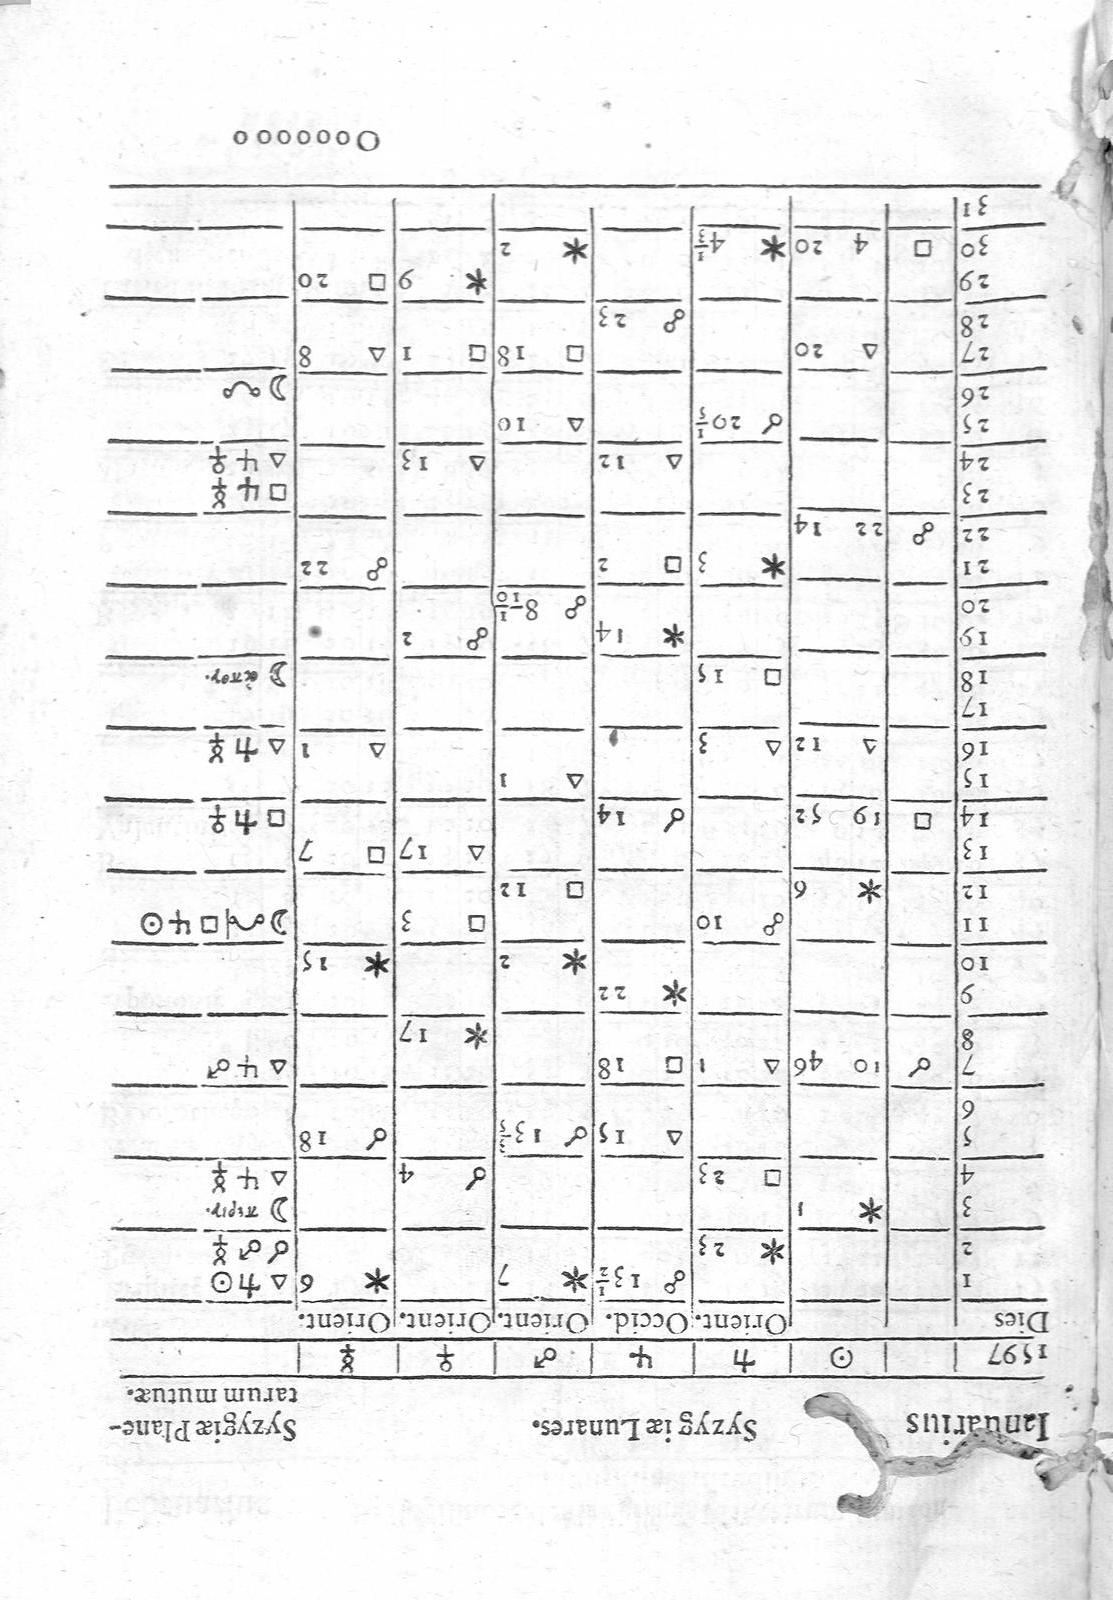 Ianuarius Syzygiæ Lunares. Syzygiæ Plane-
tarum mutuæ.
1597 ☉ ♄ ♃ ♂ ♀ ☿
Dies Orient. Occid. Orient. Orient. Orient.
1 ☍ 13½ ✶ 7 ✶ 6 △ ♄ ☉
2 ✶ 23 ☌ ♂ ☿
3 ✶ 1 ☽ περιγ.
4 □ 23 ☌ 4 △ ♃ ☿
5 △ 15 ☌ 13⅗ ☌ 18
6
7 ☌ 10 46 △ 1 □ 18 △ ♃ ♂
8 ✶ 17
9 ✶ 22
10 ✶ 2 ✶ 15
11 ☍ 10 □ 3 ☽ | □ ♃ ☉
12 ✶ 6 □ 12
13 △ 17 □ 7
14 □ 19 52 ☌ 14 □ ♄ ♀
15 △ 1
16 △ 12 △ 3 △ 1 △ ♄ ☿
17
18 □ 15 ☽ ἀπογ.
19 ✶ 14 ☍ 2
20 ☍ 8 1/10
21 ✶ 3 □ 2 ☍ 22
22 ☍ 22 14
23 □ ♃ ☿
24 △ 12 △ 13 △ ♃ ♀
25 ☌ 20⅕ △ 10
26 ☽
27 △ 20 □ 18 □ 1 △ 8
28 ☍ 23
29 ✶ 9 □ 20
30 □ 4 20 ✶ 4⅓ ✶ 2
31
Ooooooo